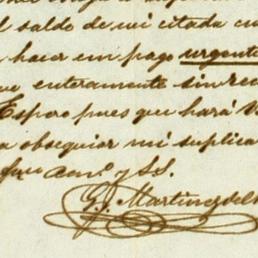 l saldo de mi citada cu
hacer un pago urgente
ue enteramente sin rec
Espero pues que hará V
a obsequiar mi suplica
afmo Amo. y SS.
G. Martinez del